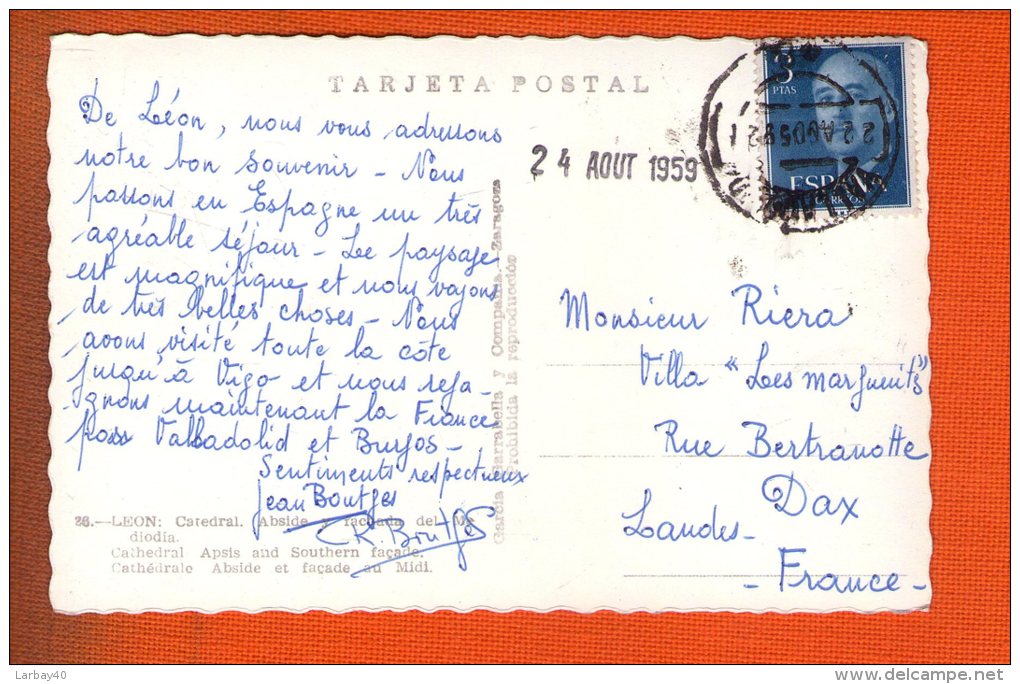 TARJETA POSTAL
De Léon, nous vous adressons
notre bon souvenir - Nous
passons en Espagne un très
agréable séjour - Le paysage
est magnifique et nous voyons
de très belles choses - Nous
avons visité toute la côte
jusqu'à Vigo et nous rega-
gnons maintenant la France
par Valladolid et Burgos -
Sentiments respectueux
Jean Boutges
R. Boutges
26.—LEON: Catedral. Abside y fachada del Me-
diodía.
Cathedral Apsis and Southern façade.
Cathédrale Abside et façade au Midi.
García Garrabella y Compañía. Zaragoza
Prohibida la reproducción
24 AOUT 1959
3
PTAS
ESPAÑA
CORREOS
Monsieur Riera
Villa "Les marguerites"
Rue Bertranotte
Dax
Landes -
- France -
Larbay40
www.delcampe.net